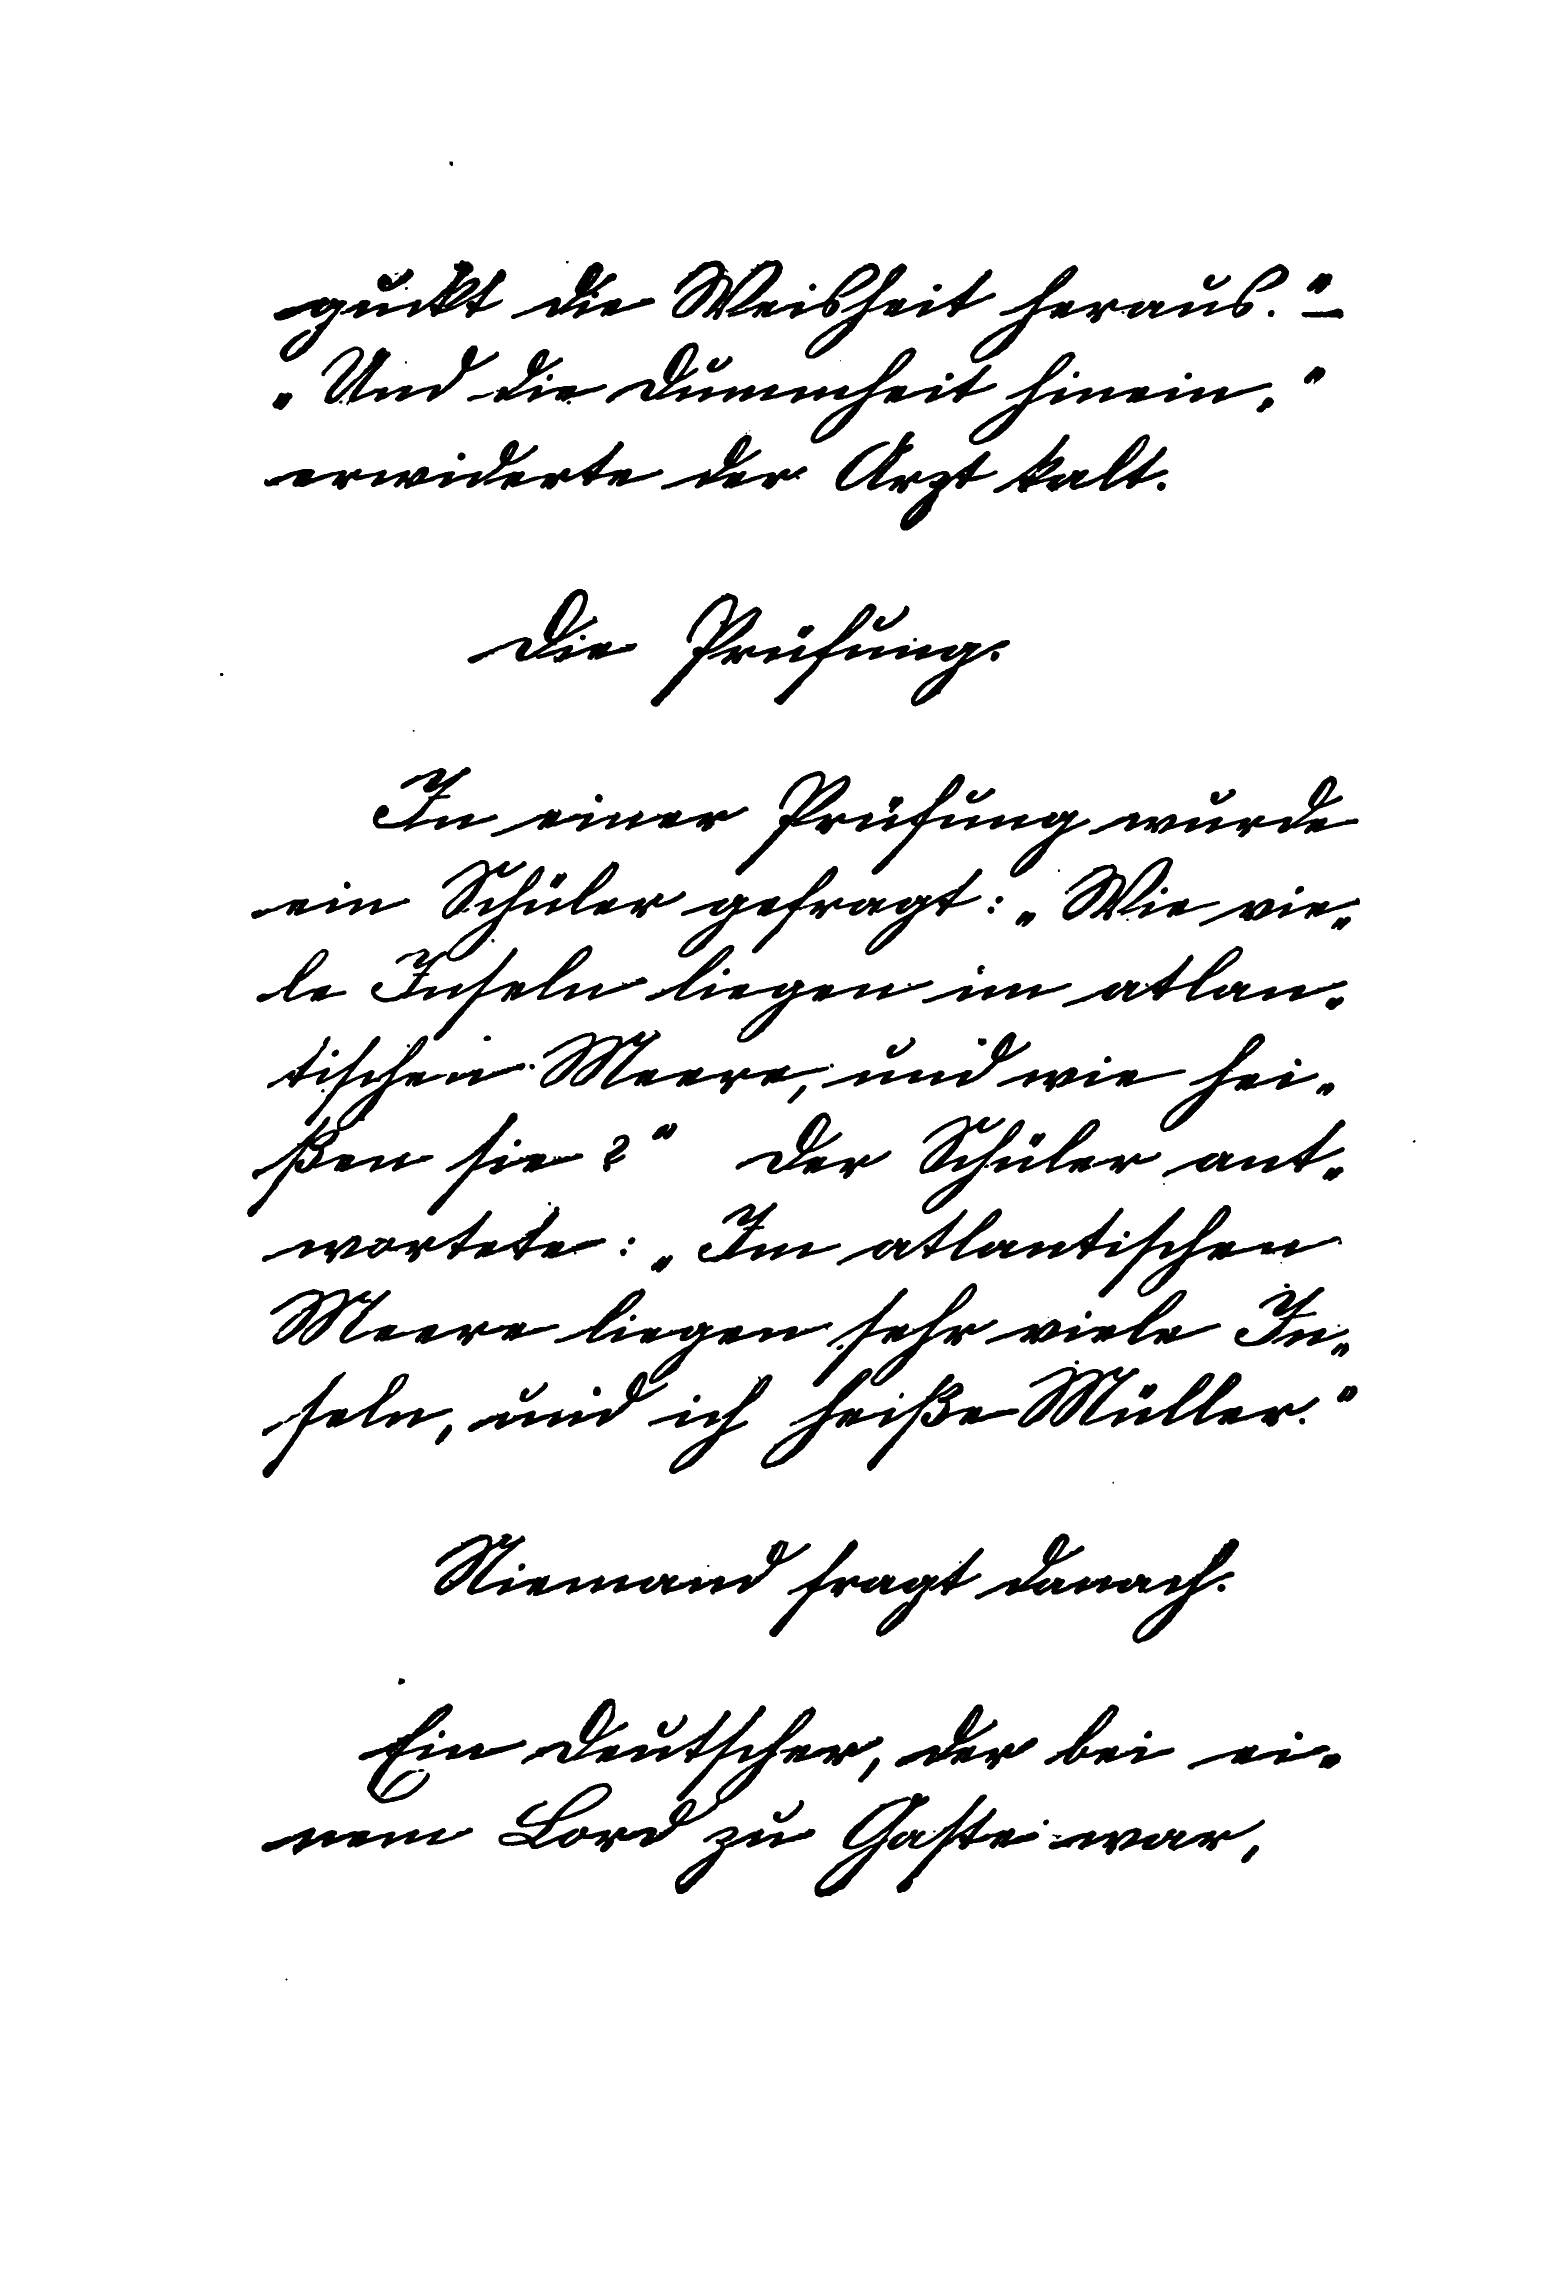 guckt die Weisheit heraus." –
„Und die Dummheit hinein,"
erwiderte der Arzt kalt.
Die Prüfung.
In einer Prüfung wurde
ein Schüler gefragt: „Wie vie„
le Inseln liegen im atlan„
tischen Meere, und wie hei„
ßen sie?" Der Schüler ant„
wortete: „Im atlantischen
Meere liegen sehr viele In„
seln, und ich heiße Müller."
Niemand fragt danach.
Ein Deutscher, der bei ei„
nem Lord zu Gaste war,